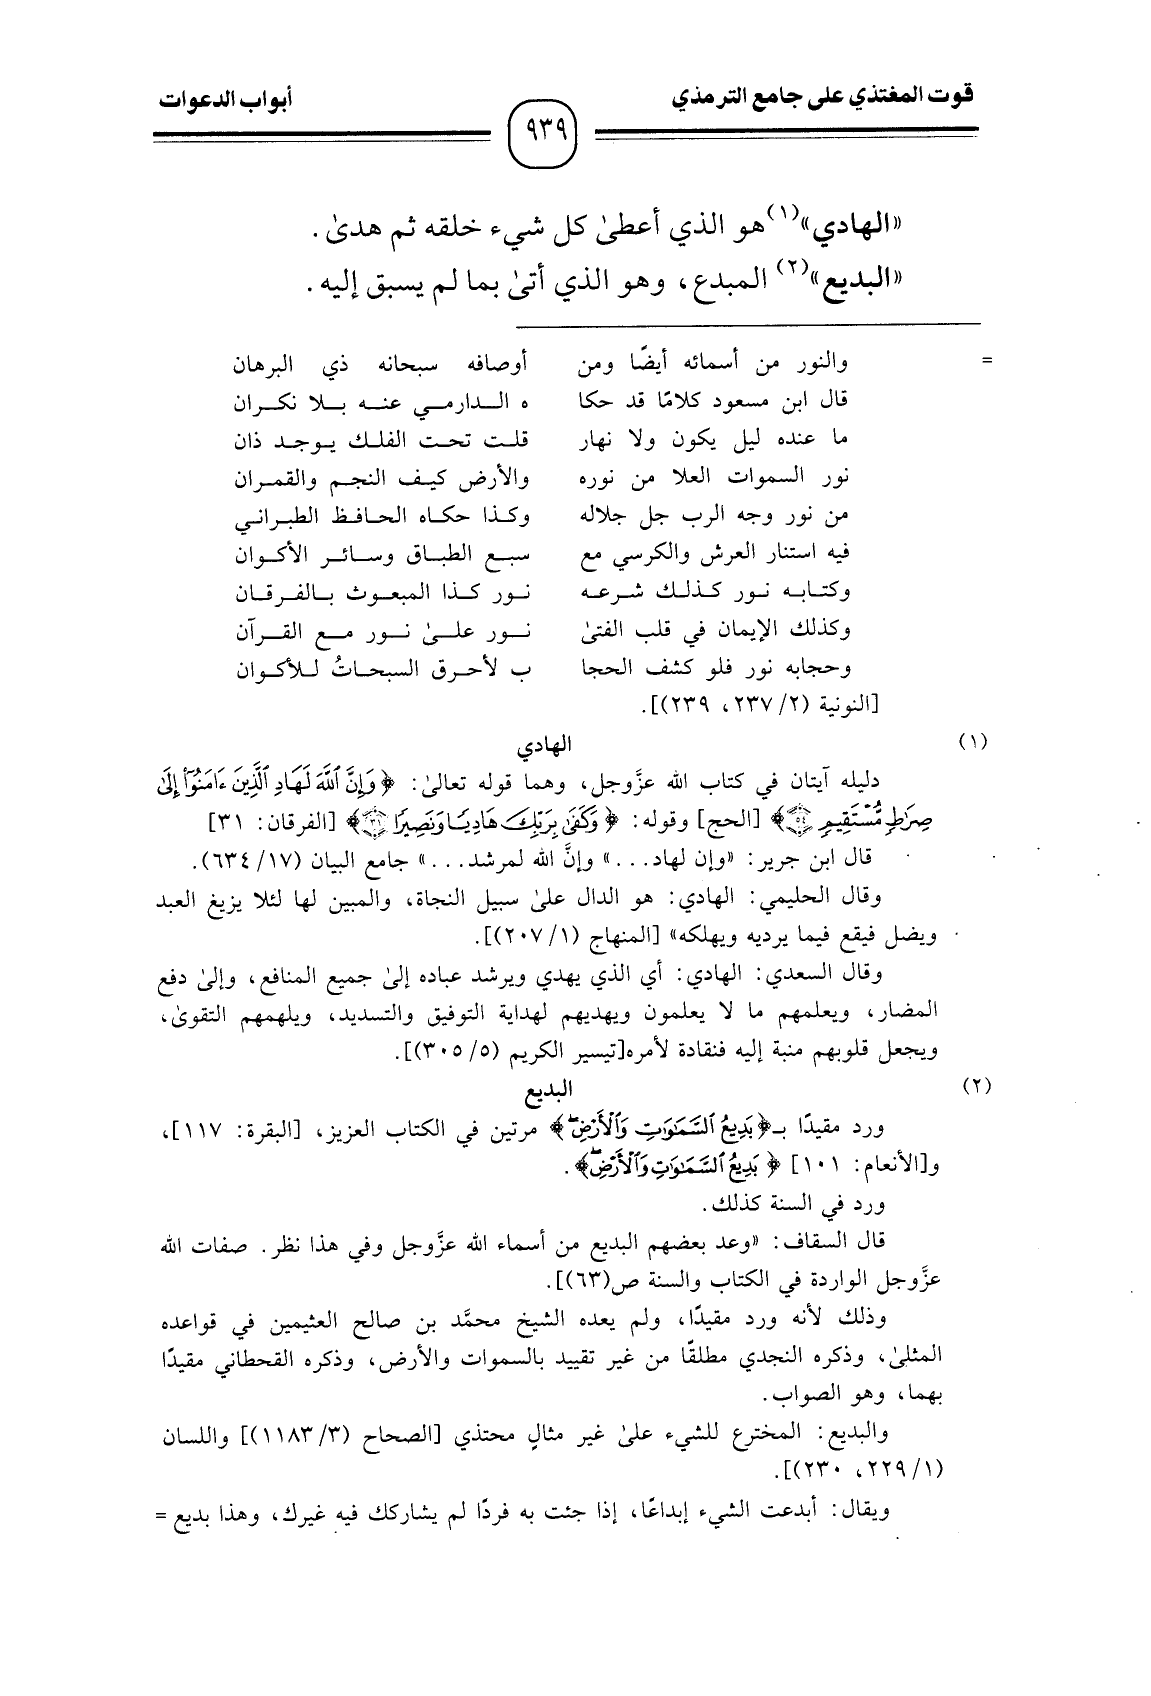 قوت المغتذي على جامع الترمذي
أبواب الدعوات
٩٣٩
«الهادي»(١) هو الذي أعطىٰ كل شيء خلقه ثم هدىٰ.
«البديع»(٢) المبدع، وهو الذي أتىٰ بما لم يسبق إليه.
= والنور من أسمائه أيضًا ومن أوصافه سبحانه ذي البرهان
قال ابن مسعود كلامًا قد حكا ه الدارمي عنه بلا نكران
ما عنده ليل يكون ولا نهار قلت تحت الفلك يوجد ذان
نور السموات العلا من نوره والأرض كيف النجم والقمران
من نور وجه الرب جل جلاله وكذا حكاه الحافظ الطبراني
فيه استنار العرش والكرسي مع سبع الطباق وسائر الأكوان
وكتابه نور كذلك شرعه نور كذا المبعوث بالفرقان
وكذلك الإيمان في قلب الفتىٰ نور علىٰ نور مع القرآن
وحجابه نور فلو كشف الحجا ب لأحرق السبحاتُ للأكوان
[النونية (٢/ ٢٣٧، ٢٣٩)].
(١) الهادي
دليله آيتان في كتاب الله عزَّوجل، وهما قوله تعالىٰ: ﴿وَإِنَّ ٱللَّهَ لَهَادِ ٱلَّذِينَ ءَامَنُوٓا۟ إِلَىٰ
صِرَٰطٍ مُّسْتَقِيمٍ ٥٤﴾ [الحج] وقوله: ﴿وَكَفَىٰ بِرَبِّكَ هَادِيًا وَنَصِيرًا ٣١﴾ [الفرقان: ٣١]
قال ابن جرير: «وإن لهاد...» وإنَّ الله لمرشد...» جامع البيان (١٧/ ٦٣٤).
وقال الحليمي: الهادي: هو الدال علىٰ سبيل النجاة، والمبين لها لئلا يزيغ العبد
ويضل فيقع فيما يرديه ويهلكه» [المنهاج (١/ ٢٠٧)].
وقال السعدي: الهادي: أي الذي يهدي ويرشد عباده إلىٰ جميع المنافع، وإلىٰ دفع
المضار، ويعلمهم ما لا يعلمون ويهديهم لهداية التوفيق والتسديد، ويلهمهم التقوىٰ،
ويجعل قلوبهم منبة إليه فنقادة لأمره[تيسير الكريم (٥/ ٣٠٥)].
(٢) البديع
ورد مقيدًا بـ﴿بَدِيعُ ٱلسَّمَٰوَٰتِ وَٱلْأَرْضِ﴾ مرتين في الكتاب العزيز، [البقرة: ١١٧]،
و[الأنعام: ١٠١] ﴿بَدِيعُ ٱلسَّمَٰوَٰتِ وَٱلْأَرْضِ﴾.
ورد في السنة كذلك.
قال السقاف: «وعد بعضهم البديع من أسماء الله عزَّوجل وفي هذا نظر. صفات الله
عزَّوجل الواردة في الكتاب والسنة ص(٦٣)].
وذلك لأنه ورد مقيدًا، ولم يعده الشيخ محمَّد بن صالح العثيمين في قواعده
المثلىٰ، وذكره النجدي مطلقًا من غير تقييد بالسموات والأرض، وذكره القحطاني مقيدًا
بهما، وهو الصواب.
والبديع: المخترع للشيء علىٰ غير مثالٍ محتذي [الصحاح (٣/ ١١٨٣)] واللسان
(١/ ٢٢٩، ٢٣٠)].
ويقال: أبدعت الشيء إبداعًا، إذا جئت به فردًا لم يشاركك فيه غيرك، وهذا بديع =